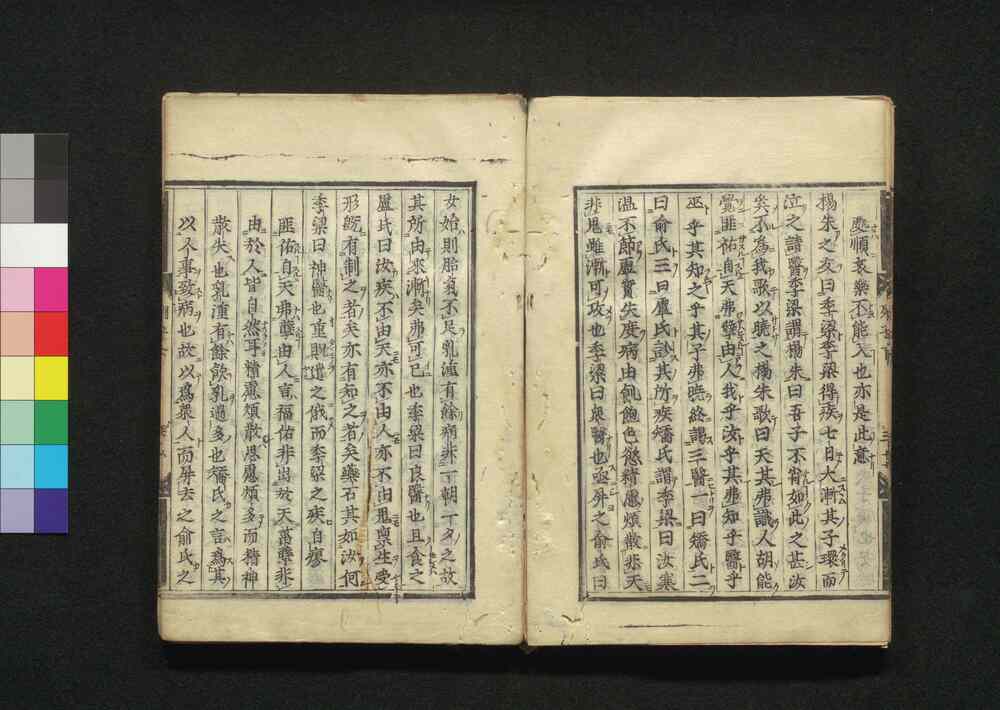 處順哀樂不能入也亦是此意
楊朱之友曰季梁季梁得疾七日大漸其子環而
泣之請醫季梁謂楊朱曰吾子不肖如此之甚汝
奚不為我歌以曉之楊朱歌曰天其弗識人胡能
覺匪祐自天弗孽由人我乎汝乎其弗知乎醫乎
巫乎其知之乎其子弗曉終謁三醫一曰矯氏二
曰俞氏三曰盧氏診其所疾矯氏謂季梁曰汝寒
溫不節虛實失度病由飢飽色慾精慮煩散非天
非鬼雖漸可攻也季梁曰衆醫也亟屏之俞氏曰
女始則胎氣不足乳湩有餘病非一朝一夕之故
其所由來漸矣弗可已也季梁曰良醫也且食之
盧氏曰汝疾不由天亦不由人亦不由鬼稟生受
形既有制之者矣亦有知之者矣藥石其如汝何
季梁曰神醫也重貺遣之俄而季梁之疾自瘳
匪佑自天弗孽由人言福佑非出於天葘孽非
由於人皆自然耳精慮煩散思慮煩多而精神
散失也乳湩有餘飲乳過多也矯氏之言為其
以人事致病也故以為衆人而屏去之俞氏之